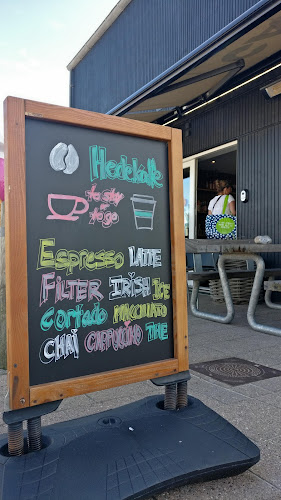 Hedekalk
to stay
or
to go
Espresso LATTE
FILTER IRISH ICE
Cortado MACCHIATO
CHAI CAPPUCINO THE